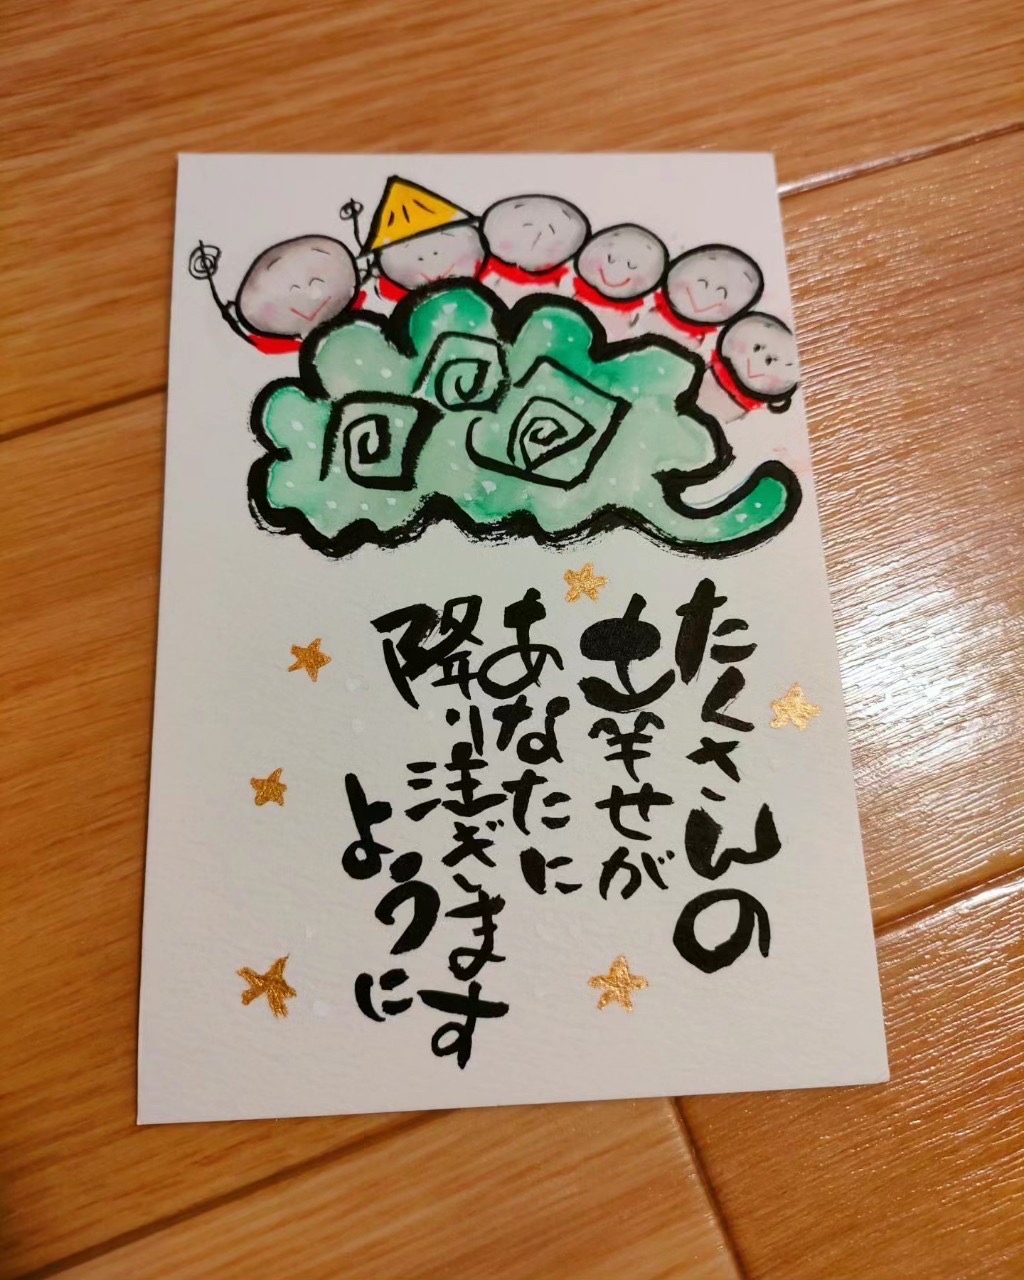 たくさんの
幸せが
あなたに
降り注ぎます
ように